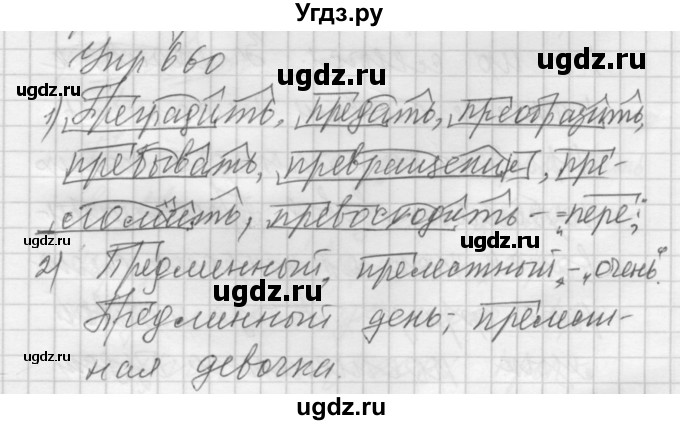 Угдз.ру
Упр 660
1) Преградить, предать, преобразить,
пребывать, превращение, пре-
ломить, превосходить - „пере";
2) Предлинный, прелестный, - „очень".
Предлинный день; прелест-
ная девочка.
ugdz.ru
ugdz.ru
ugdz.ru
ugdz.ru
ugdz.ru
ugdz.ru
ugdz.ru
ugdz.ru
ugdz.ru